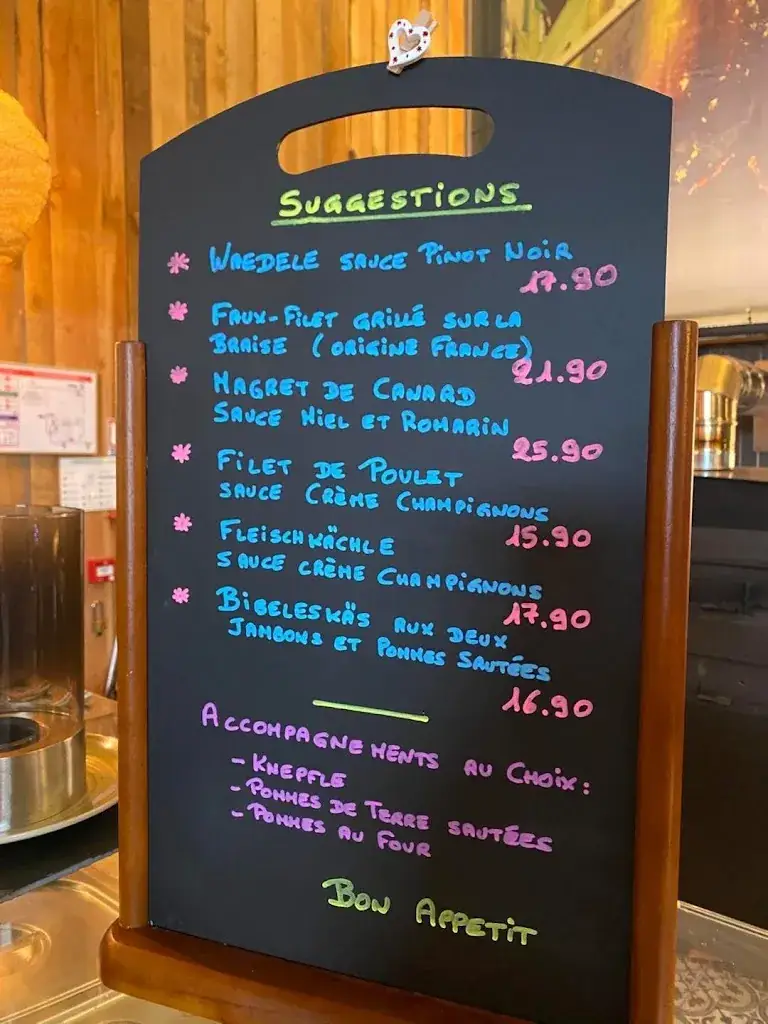 SUGGESTIONS
* WAEDELE SAUCE PINOT NOIR
17.90
* FAUX-FILET GRILLÉ SUR LA
BRAISE (ORIGINE FRANCE)
21.90
* MAGRET DE CANARD
SAUCE MIEL ET ROMARIN
25.90
* FILET DE POULET
SAUCE CRÈME CHAMPIGNONS
15.90
* FLEISCHKÄCHLE
SAUCE CRÈME CHAMPIGNONS
17.90
* BIBELESKÄS AUX DEUX
JAMBONS ET POMMES SAUTÉES
16.90
ACCOMPAGNEMENTS AU CHOIX:
- KNEPFLE
- POMMES DE TERRE SAUTÉES
- POMMES AU FOUR
BON APPETIT